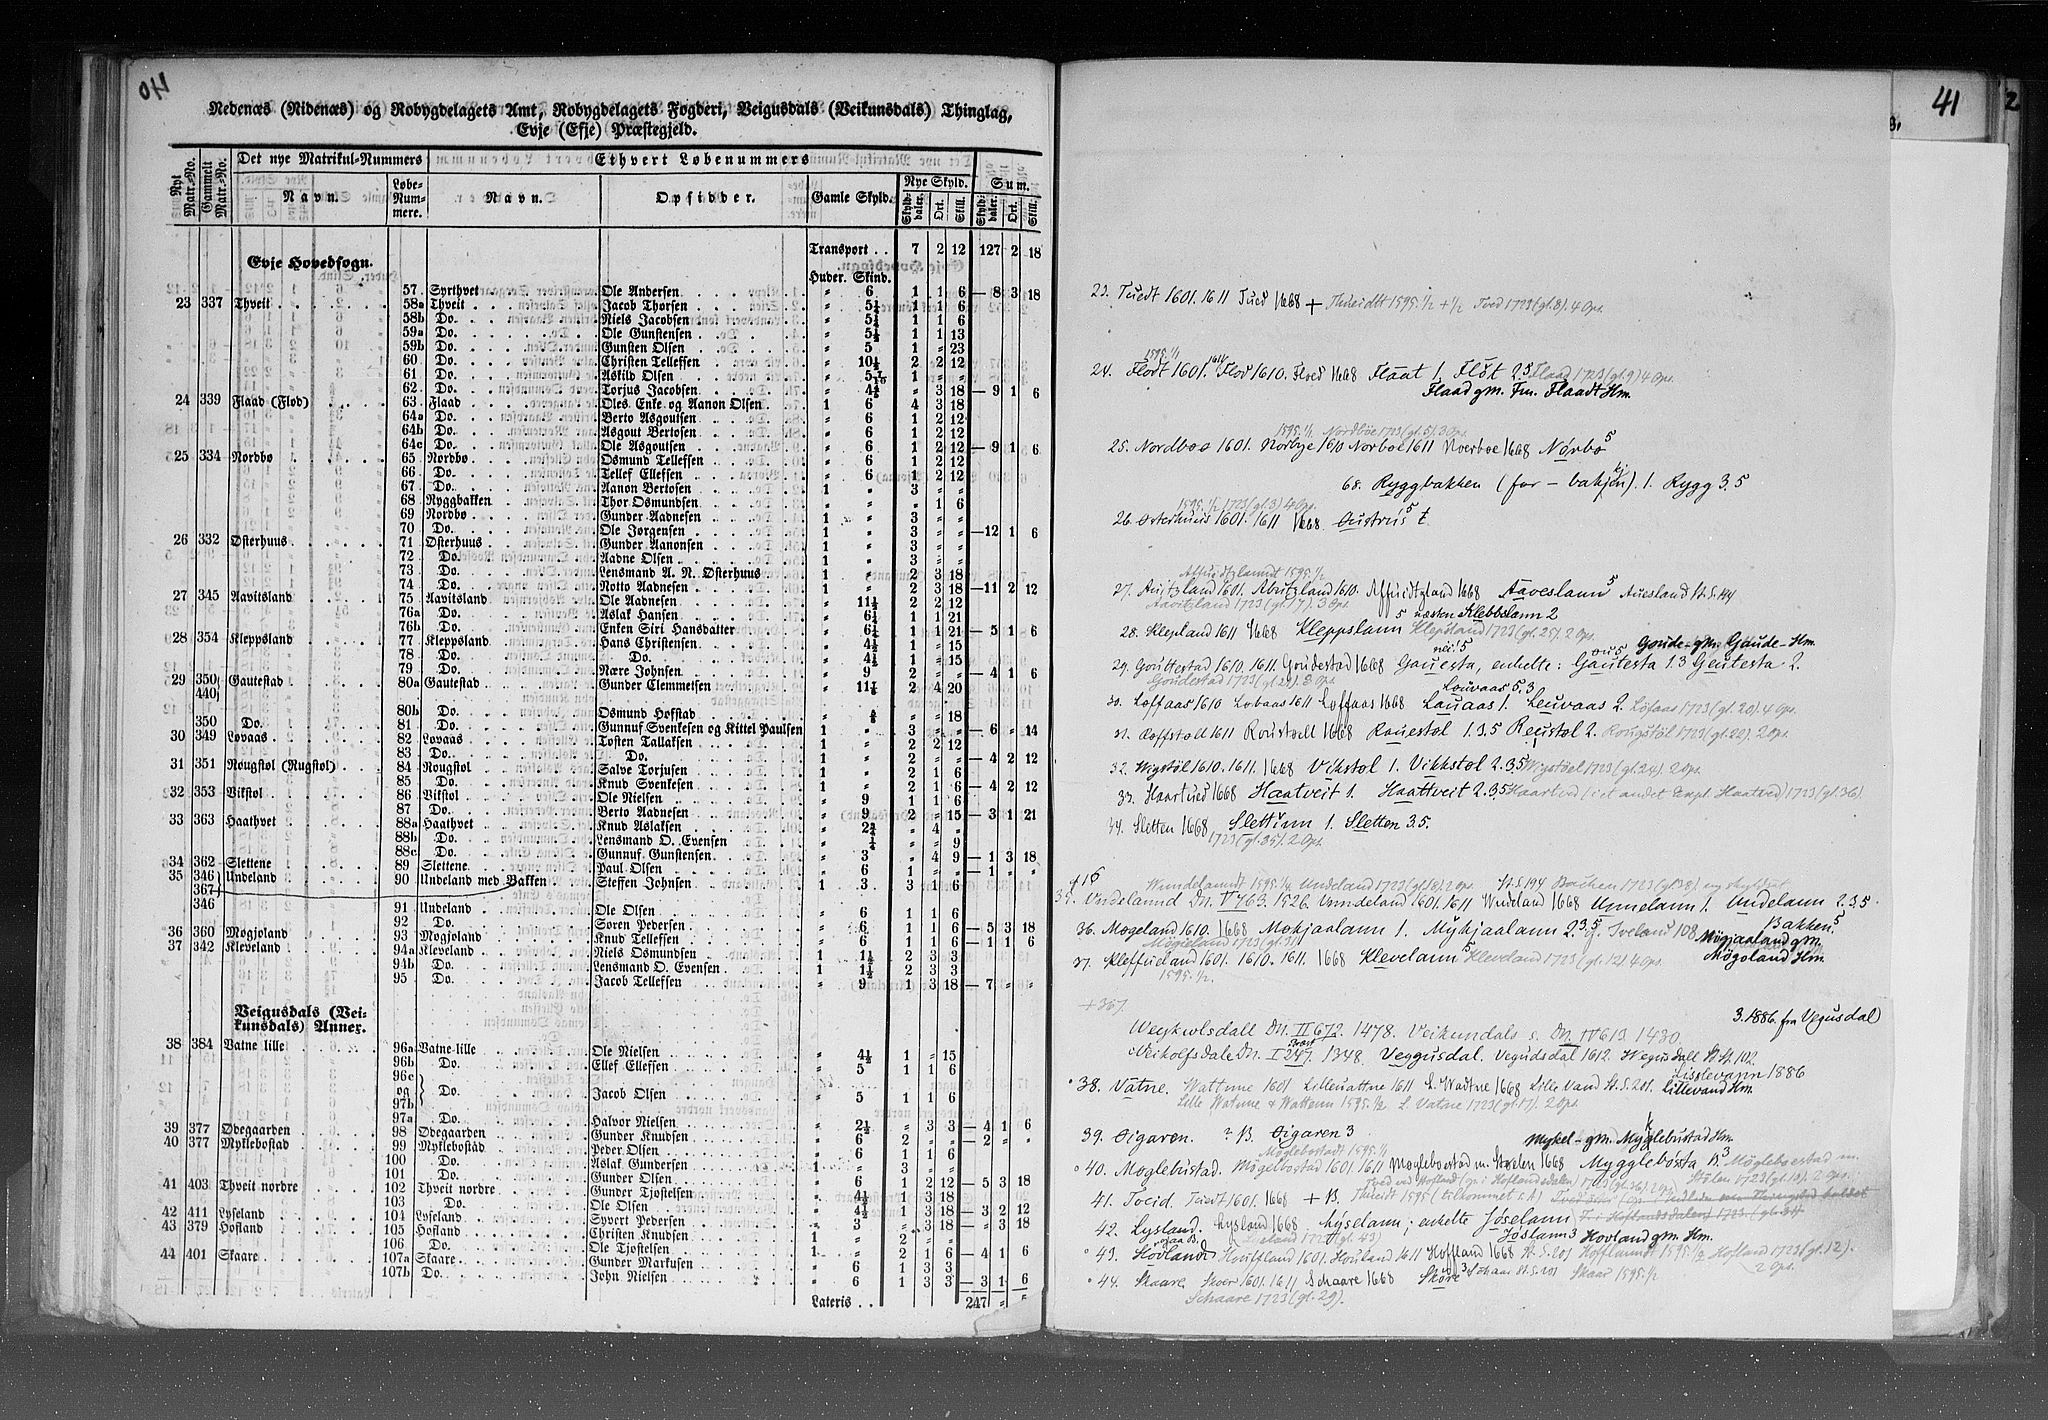 40
Nedenæs (Nidenæs) og Robygdelagets Amt, Robygdelagets Fogderi, Veigusdals (Veikunsdals) Thinglag,
Evje (Efje) Præstegjeld.
Nyt Matr.-No. Gammelt Matr.-No. Det nye Matrikul-Nummers Ethvert Løbenummers
Navn. Løbe-Nummere. Navn. Opsidder. Gamle Skyld. Nye Skyld. Sum.
Skylddaler. Ort. Skill. Skylddaler. Ort. Skill.
Transport . . 7 2 12 127 2 18
Evje Hovedsogn.
Huder. Skind.
57 Syrthvet Ole Andersen „ 6 1 1 6 — 8 3 18
23 337 Thveit 58a Thveit Jacob Thorsen „ 5¼ 1 1 6
58b Do. Niels Jacobsen „ 5¼ 1 1 6
59a Do. Ole Gunstensen „ 5½ 1 1 13
59b Do. Gunsten Olsen „ 5 1 „ 23
60 Do. Christen Tellefsen „ 10½ 2 2 12
61 Do. Askild Olsen „ 5 7/10 1 „ „
62 Do. Torjus Jacobsen „ 4¼ „ 3 18 — 9 1 6
24 339 Flaad (Flod) 63 Flaad Oles Enke og Aanon Olsen 1 6 4 3 18
64a Do. Berto Asgoutsen „ 6 1 2 12
64b Do. Asgout Bertosen „ 6 1 2 12
64c Do. Ole Asgoutsen „ 6 1 2 12 — 9 1 6
25 334 Nordbø 65 Nordbø Osmund Tellefsen „ 6 1 2 12
66 Do. Tellef Ellefsen „ 6 1 2 12
67 Do. Aanon Bertosen 1 „ 3 „ „
68 Ryggbakken Thor Osmundsen „ „ „ 1 6
69 Nordbø Gunder Aadnesen 1 „ 3 „ „
70 Do. Ole Jørgensen 1 „ 3 „ „ — 12 1 6
26 332 Østerhuus 71 Østerhuus Gunder Aanonsen 1 „ 3 „ „
72 Do. Aadne Olsen 1 „ 3 „ „
73 Do. Lensmand A. N. Østerhuus 1 „ 2 3 18
74 Do. Notto Aadnesen 1 „ 2 3 18 — 11 2 12
27 345 Aavitsland 75 Aavitsland Ole Aadnesen „ 11½ 2 2 12
76a Do. Aslak Hansen „ 6¼ 1 1 21
76b Do. Enken Siri Hansdatter „ 6¼ 1 1 21 — 5 1 6
28 354 Kleppsland 77 Kleppsland Hans Christensen „ 4½ 1 „ 15
78 Do. Do. „ 4½ 1 „ 15
79 Do. Nære Johnsen „ 9 2 „ „ — 4 1 6
29 350 440 Gautestad 80a Gautestad Gunder Clemmetsen „ 11½ 2 4 20
80b Do. Osmund Hofstad „ „ „ 18
350 Do. 81 Do. Gunnuf Svenkesen og Kittel Paulsen 1 „ 3 „ „ — 6 „ 14
30 349 Lovaas 82 Lovaas Tosten Tallaksen 1 „ 2 2 12
83 Do. Do. 1 „ 2 „ „ — 4 2 12
31 351 Rougstol (Rugstol) 84 Rougstol Salve Torjusen 1 „ 2 1 6
85 Do. Knud Svenkesen 1 „ 2 1 6 — 4 2 12
32 353 Vikstol 86 Vikstol Ole Nielsen „ 9 1 1 6
87 Do. Berto Aadnesen „ 9 2 „ 15 — 3 1 21
33 363 Haathvet 88a Haathvet Knud Aslaksen „ 2¾ „ 4 „
88b Do. Lensmand O. Evensen „ ¼ „ „ 9
88c Do. Gunnuf Gunstensen „ 3 „ 4 9 — 1 3 18
34 362 Slettene 89 Slettene Paul Olsen „ 6 1 „ „ — 1 „ „
35 346 367 Undeland 90 Undeland med Bakken Steffen Johnsen 1 3 3 1 6
346 91 Undeland Ole Olsen „ 6 1 1 6
92 Do. Søren Pedersen „ 6 1 1 6 — 5 3 18
36 360 Mogjoland 93 Mogjoland Knud Tellefsen „ 6 1 1 6 — 1 1 6
37 342 Kleveland 94a Kleveland Niels Osmundsen 1 1½ 2 3 3
94b Do. Lensmand O. Evensen 1 1½ 2 3 3
95 Do. Jacob Tellefsen „ 9 1 3 18 — 7 „ „
Veigusdals (Vei-
kunsdals) Annex.
38 384 Vatne lille 96a Vatne lille Ole Nielsen „ 4½ 1 „ 15
96b Do. Ellef Ellefsen „ 5 1 1 6
96c
og Do. Jacob Olsen „ 5 1 1 6
97b
97a Do. Halvor Nielsen „ 2½ „ 3 3 — 4 1 6
39 377 Ødegaarden 98 Ødegaarden Gunder Knudsen „ 6 2 „ „ — 2 „ „
40 377 Myklebostad 99 Myklebostad Peder Olsen „ 6 1 1 6
100 Do. Aslak Gundersen 1 „ 3 „ „
101 Do. Gunder Olsen „ 6 1 2 12 — 5 3 18
41 403 Thveit nordre 102 Thveit nordre Gunder Tjøstelsen „ 4½ 1 3 18
103 Do. Ole Olsen „ 4½ 1 3 18 — 3 2 12
42 411 Lyseland 104 Lyseland Syvert Pedersen „ 3 „ 3 18 — „ 3 18
43 379 Hofland 105 Hofland Christen Knudsen 1 „ 2 „ „
106 Do. Ole Tjøstelsen 1 „ 2 1 6 — 4 1 6
44 401 Skaare 107a Skaare Gunder Markusen „ 6 1 3 3
107b Do. John Nielsen „ 6 1 3 3 — 3 1 6
Lateris . . 247 „ „
41
23. Tuedt 1601. 1611 Tued 1668 + Thueidtt 1595. 1/2 + 1/2 Tved 1723 (gl. 8). 4 Ops.
1595. 1/1 1614
24. Flodt 1601. Flod 1610. Floed 1668 Flaat 1. Flöt 2.3. Flaad 1723 (gl. 9) 4 Ops.
Flaad gm. Fm. Flaadt Hm.
1595. 1/1 Nordböe 1723 (gl. 5). 3 Ops.
25. Nordboe 1601. Norbye 1610 Norboe 1611 Noerboe 1668 Nørbø 5
68. Ryggbakken (for – bakjen). 1. Rygg 3.5
1595. 1/2 1723 (gl. 3) 4 Ops.
26. Osterhuus 1601. 1611 1668. Austrús 5
Affuidtzlanndt 1595. 1/2
27. Auitzland 1601. Abuitzland 1610. Affuidtzland 1668 Aaveslann 5 Auesland St. S. 194
Aavitzland 1723 (gl. 17). 3 Ops. 5 næsten Klebbslann 2
28. Klepland 1611 1668 Kleppslann Klepsland 1723 (gl. 25). 2 Ops.
Goude- gm. Gaude- Hm.
29. Gouttestad 1610. 1611. Goudestad 1668 Gauesta, enkelte: Gautesta 1.3 Geutesta 2.
Goudestad 1723 (gl. 22). 3 Ops.
Louvaas 5.3
30. Loffaas 1610 Lobaas 1611 Loffaas 1668 Lauaas 1. Leuvaas 2. Löfaas 1723 (gl. 20). 4 Ops.
31. Roffstoll 1611 Roustoell 1668 Rauestol 1.3.5 Reustol 2. Rougstöl 1723 (gl. 22). 2 Ops.
32. Wigstöl 1610. 1611. 1668 Vikstol 1. Vikkstol 2.3.5 Wigstöel 1723 (gl. 24). 2 Ops.
33. Haartued 1668 Haatveit 1. Haattveit 2.3.5 Haartved (i et andet Expl. Haatved 1723 (gl. 36)
34. Sletten 1668 Slettinn 1. Sletten 3.5.
1723 (gl. 35). 2 Ops.
Wnndelanndt 1595. 1/2 Undeland 1723 (gl. 18) 2 Ops. St. S. 194 Bachen 1723 (gl. 38) ny skyldsat
35. Vndelannd Dn. V 763. 1526 Vnndeland 1601. 1611 Wndeland 1668 Unnelann 1. Undelann 2.3.5.
Bakken 5
36. Mogeland 1610. 1668 Mokjaalann 1. Mykjaalann 2.3.5 Iveland 108 Mögjaaland gm.
Mögieland 1723 (gl. 31) Mögoland Hm.
37. Kleffueland 1601. 1610. 1611. 1668 Klevelann 5 Kleveland 1723 (gl. 12) 4 Ops.
1595. 1/2.
+ 367.
3. 1886. fra Vegusdal
Weykwlsdall Dn. II 672. 1478. Veikundals s. Dn. IV 613. 1430.
Veikolfsdale Dn. I 247. 1348 Veggusdal. Vegudsdal 1612. Wegusdall St. S. 102.
Lisslevann 1886
38. Vatne. Wattnne 1601 Lilleuattne 1611 L. Wadtne 1668 Lille Vand St. S. 201. Lillevand Hm.
Lille Watnne & Wattenn 1595. 1/2 L. Vatne 1723 (gl. 17). 2 Ops.
39. Øigaren. ? B. Øigaren 3
Mykel- gm. Myglebustad Hm.
Möglebostadt 1595. 1/1
40. Moglebustad. Mögelbostad 1601. 1611 Mogleboestad m. Stoelen 1668 Mygglebösta B. 3 Mögleboestad m.
Stölen 1723 (gl. 13). 2 Ops.
41. Tveid Tuedt 1601. 1668 + B. Thueidt 1595
42. Lysland. Lysland 1668 Lýselann; enkelte Jöselann
Lieland 1723 (gl. 43) Jöslann 3 Hovland gm. Hm.
43. Hovland Houffland 1601. Houland 1611 Hoffland 1668 St. S. 201 Hofflanndt 1595. 1/2 Hofland 1723 (gl. 12).
2 Ops.
44. Skaare Skoer 1601. 1611 Schaare 1668 Skore 3 Schaar St. S. 201 Skaar 1595. 1/2
Schaare 1723 (gl. 29).